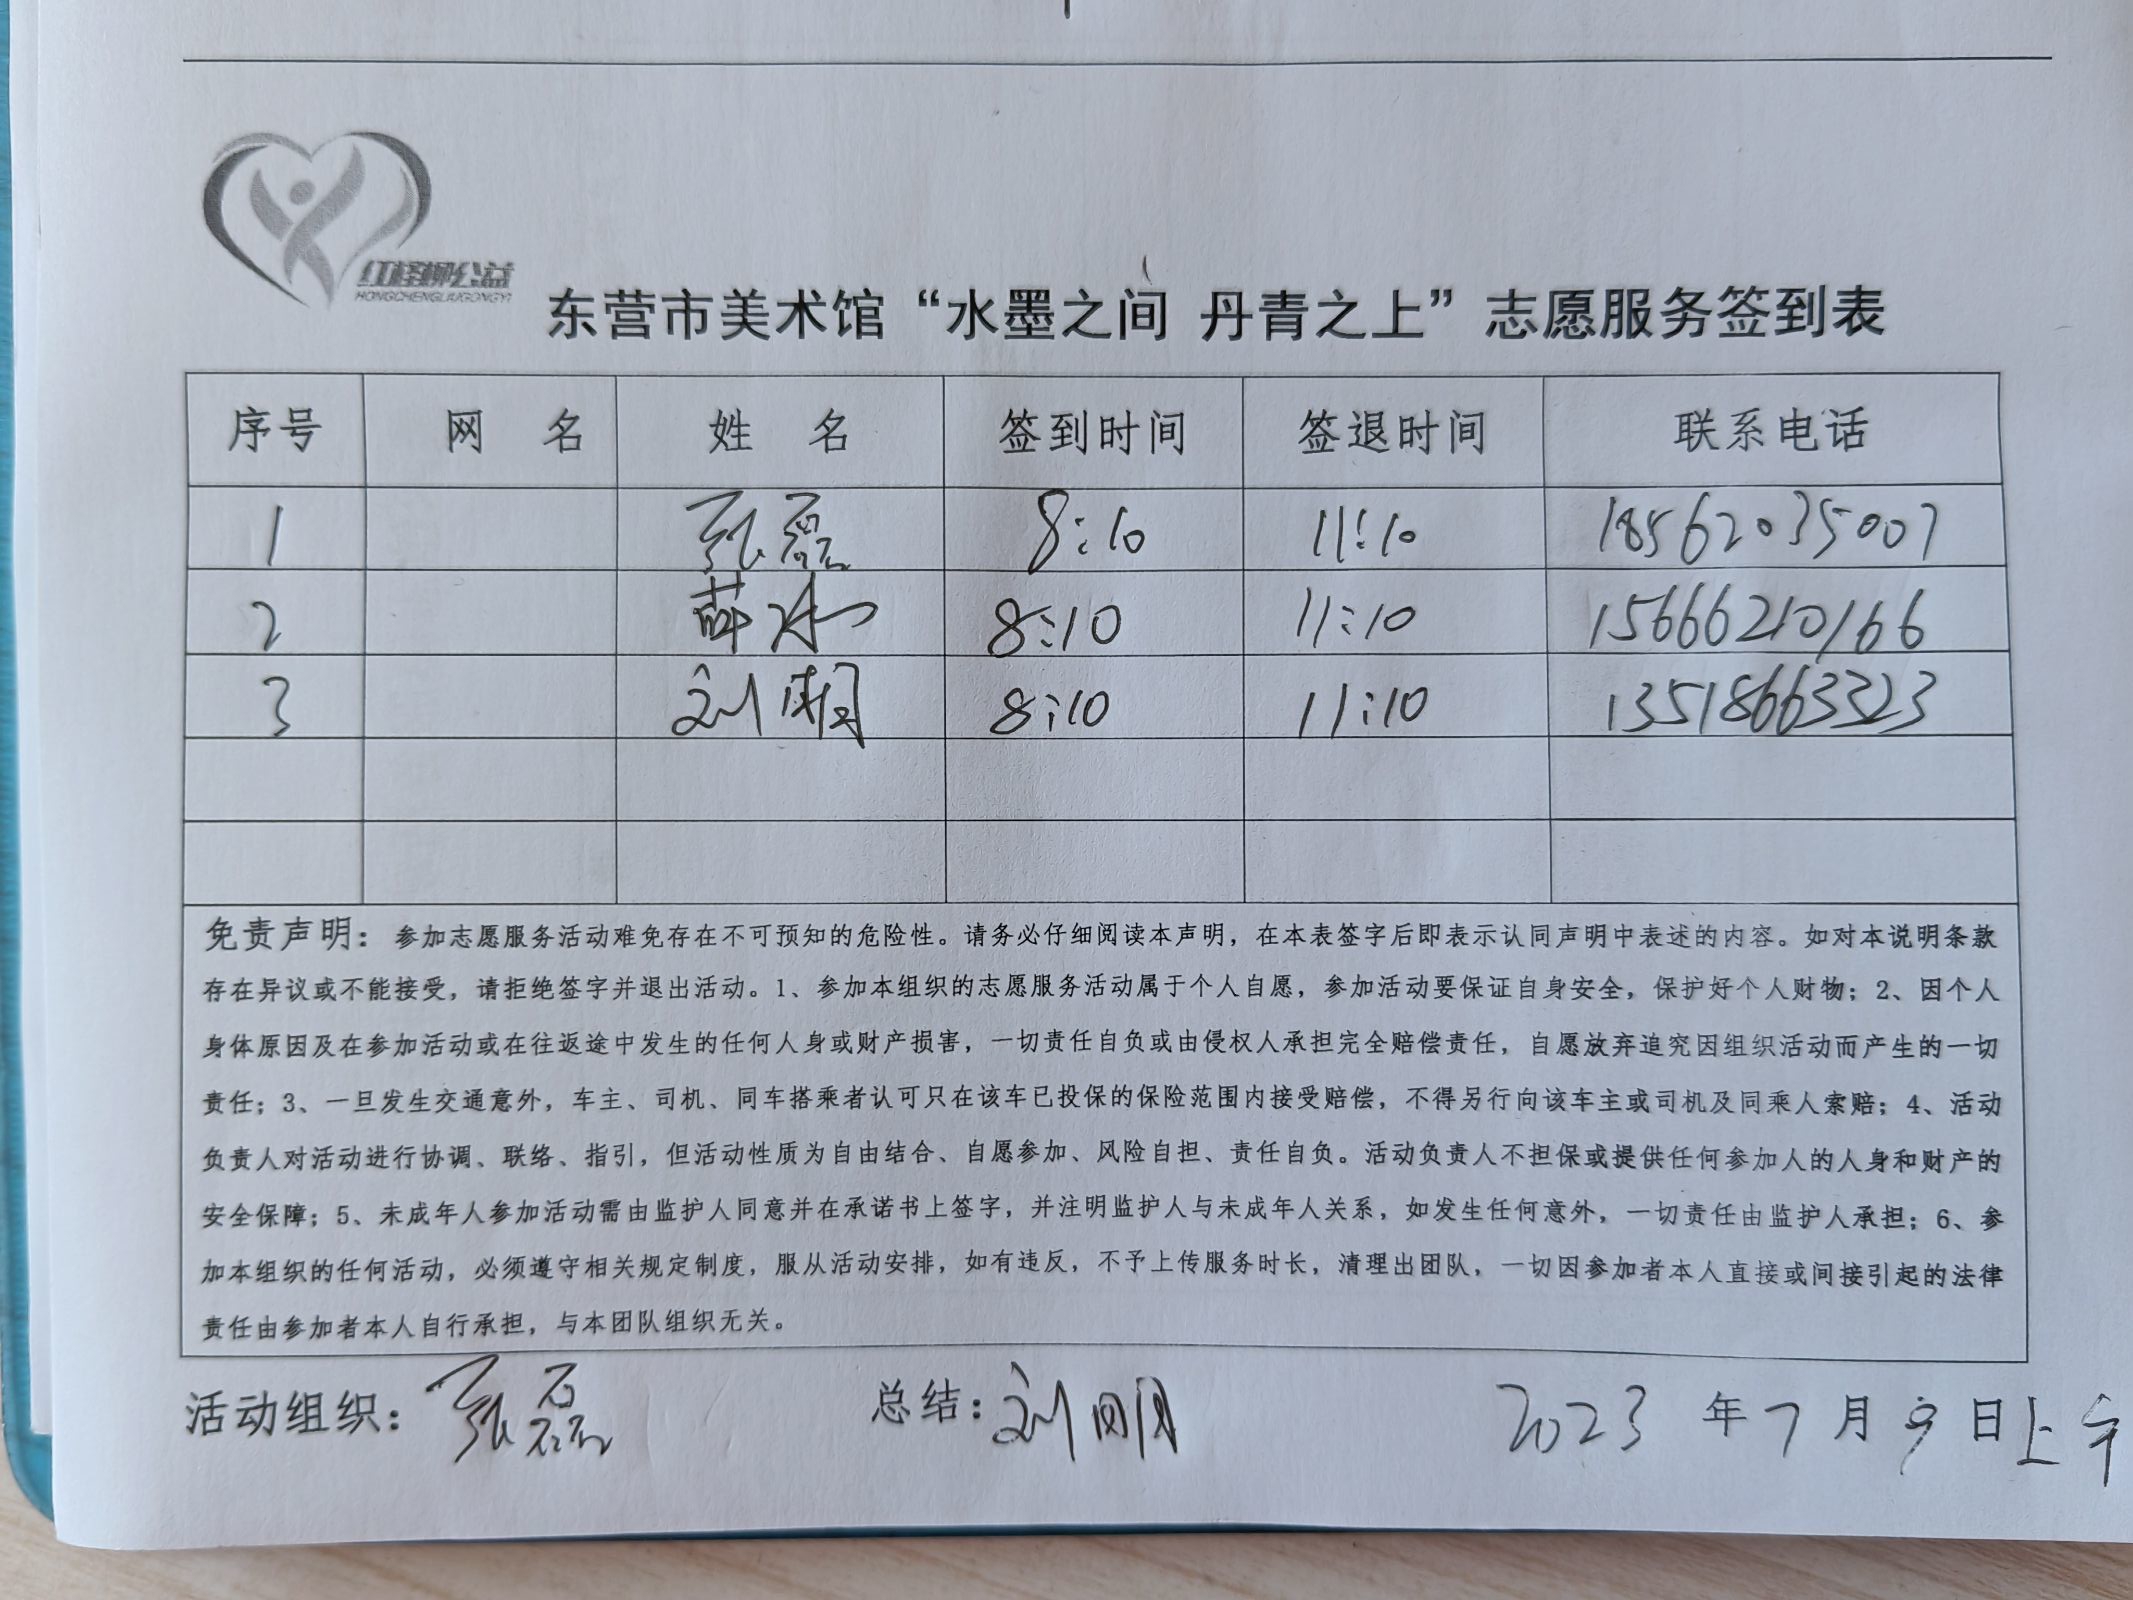 红柽柳公益
HONGCHENGLIUGONGYI
东营市美术馆“水墨之间 丹青之上”志愿服务签到表
序号 网 名 姓 名 签到时间 签退时间 联系电话
1 张磊 8:10 11:10 18562035007
2 薛冰 8:10 11:10 15666210166
3 刘 8:10 11:10 13518663323
免责声明：参加志愿服务活动难免存在不可预知的危险性。请务必仔细阅读本声明，在本表签字后即表示认同声明中表述的内容。如对本说明条款
存在异议或不能接受，请拒绝签字并退出活动。1、参加本组织的志愿服务活动属于个人自愿，参加活动要保证自身安全，保护好个人财物；2、因个人
身体原因及在参加活动或在往返途中发生的任何人身或财产损害，一切责任自负或由侵权人承担完全赔偿责任，自愿放弃追究因组织活动而产生的一切
责任；3、一旦发生交通意外，车主、司机、同车搭乘者认可只在该车已投保的保险范围内接受赔偿，不得另行向该车主或司机及同乘人索赔；4、活动
负责人对活动进行协调、联络、指引，但活动性质为自由结合、自愿参加、风险自担、责任自负。活动负责人不担保或提供任何参加人的人身和财产的
安全保障；5、未成年人参加活动需由监护人同意并在承诺书上签字，并注明监护人与未成年人关系，如发生任何意外，一切责任由监护人承担；6、参
加本组织的任何活动，必须遵守相关规定制度，服从活动安排，如有违反，不予上传服务时长，清理出团队，一切因参加者本人直接或间接引起的法律
责任由参加者本人自行承担，与本团队组织无关。
活动组织：张磊 总结：刘 2023 年 7 月 9 日上午